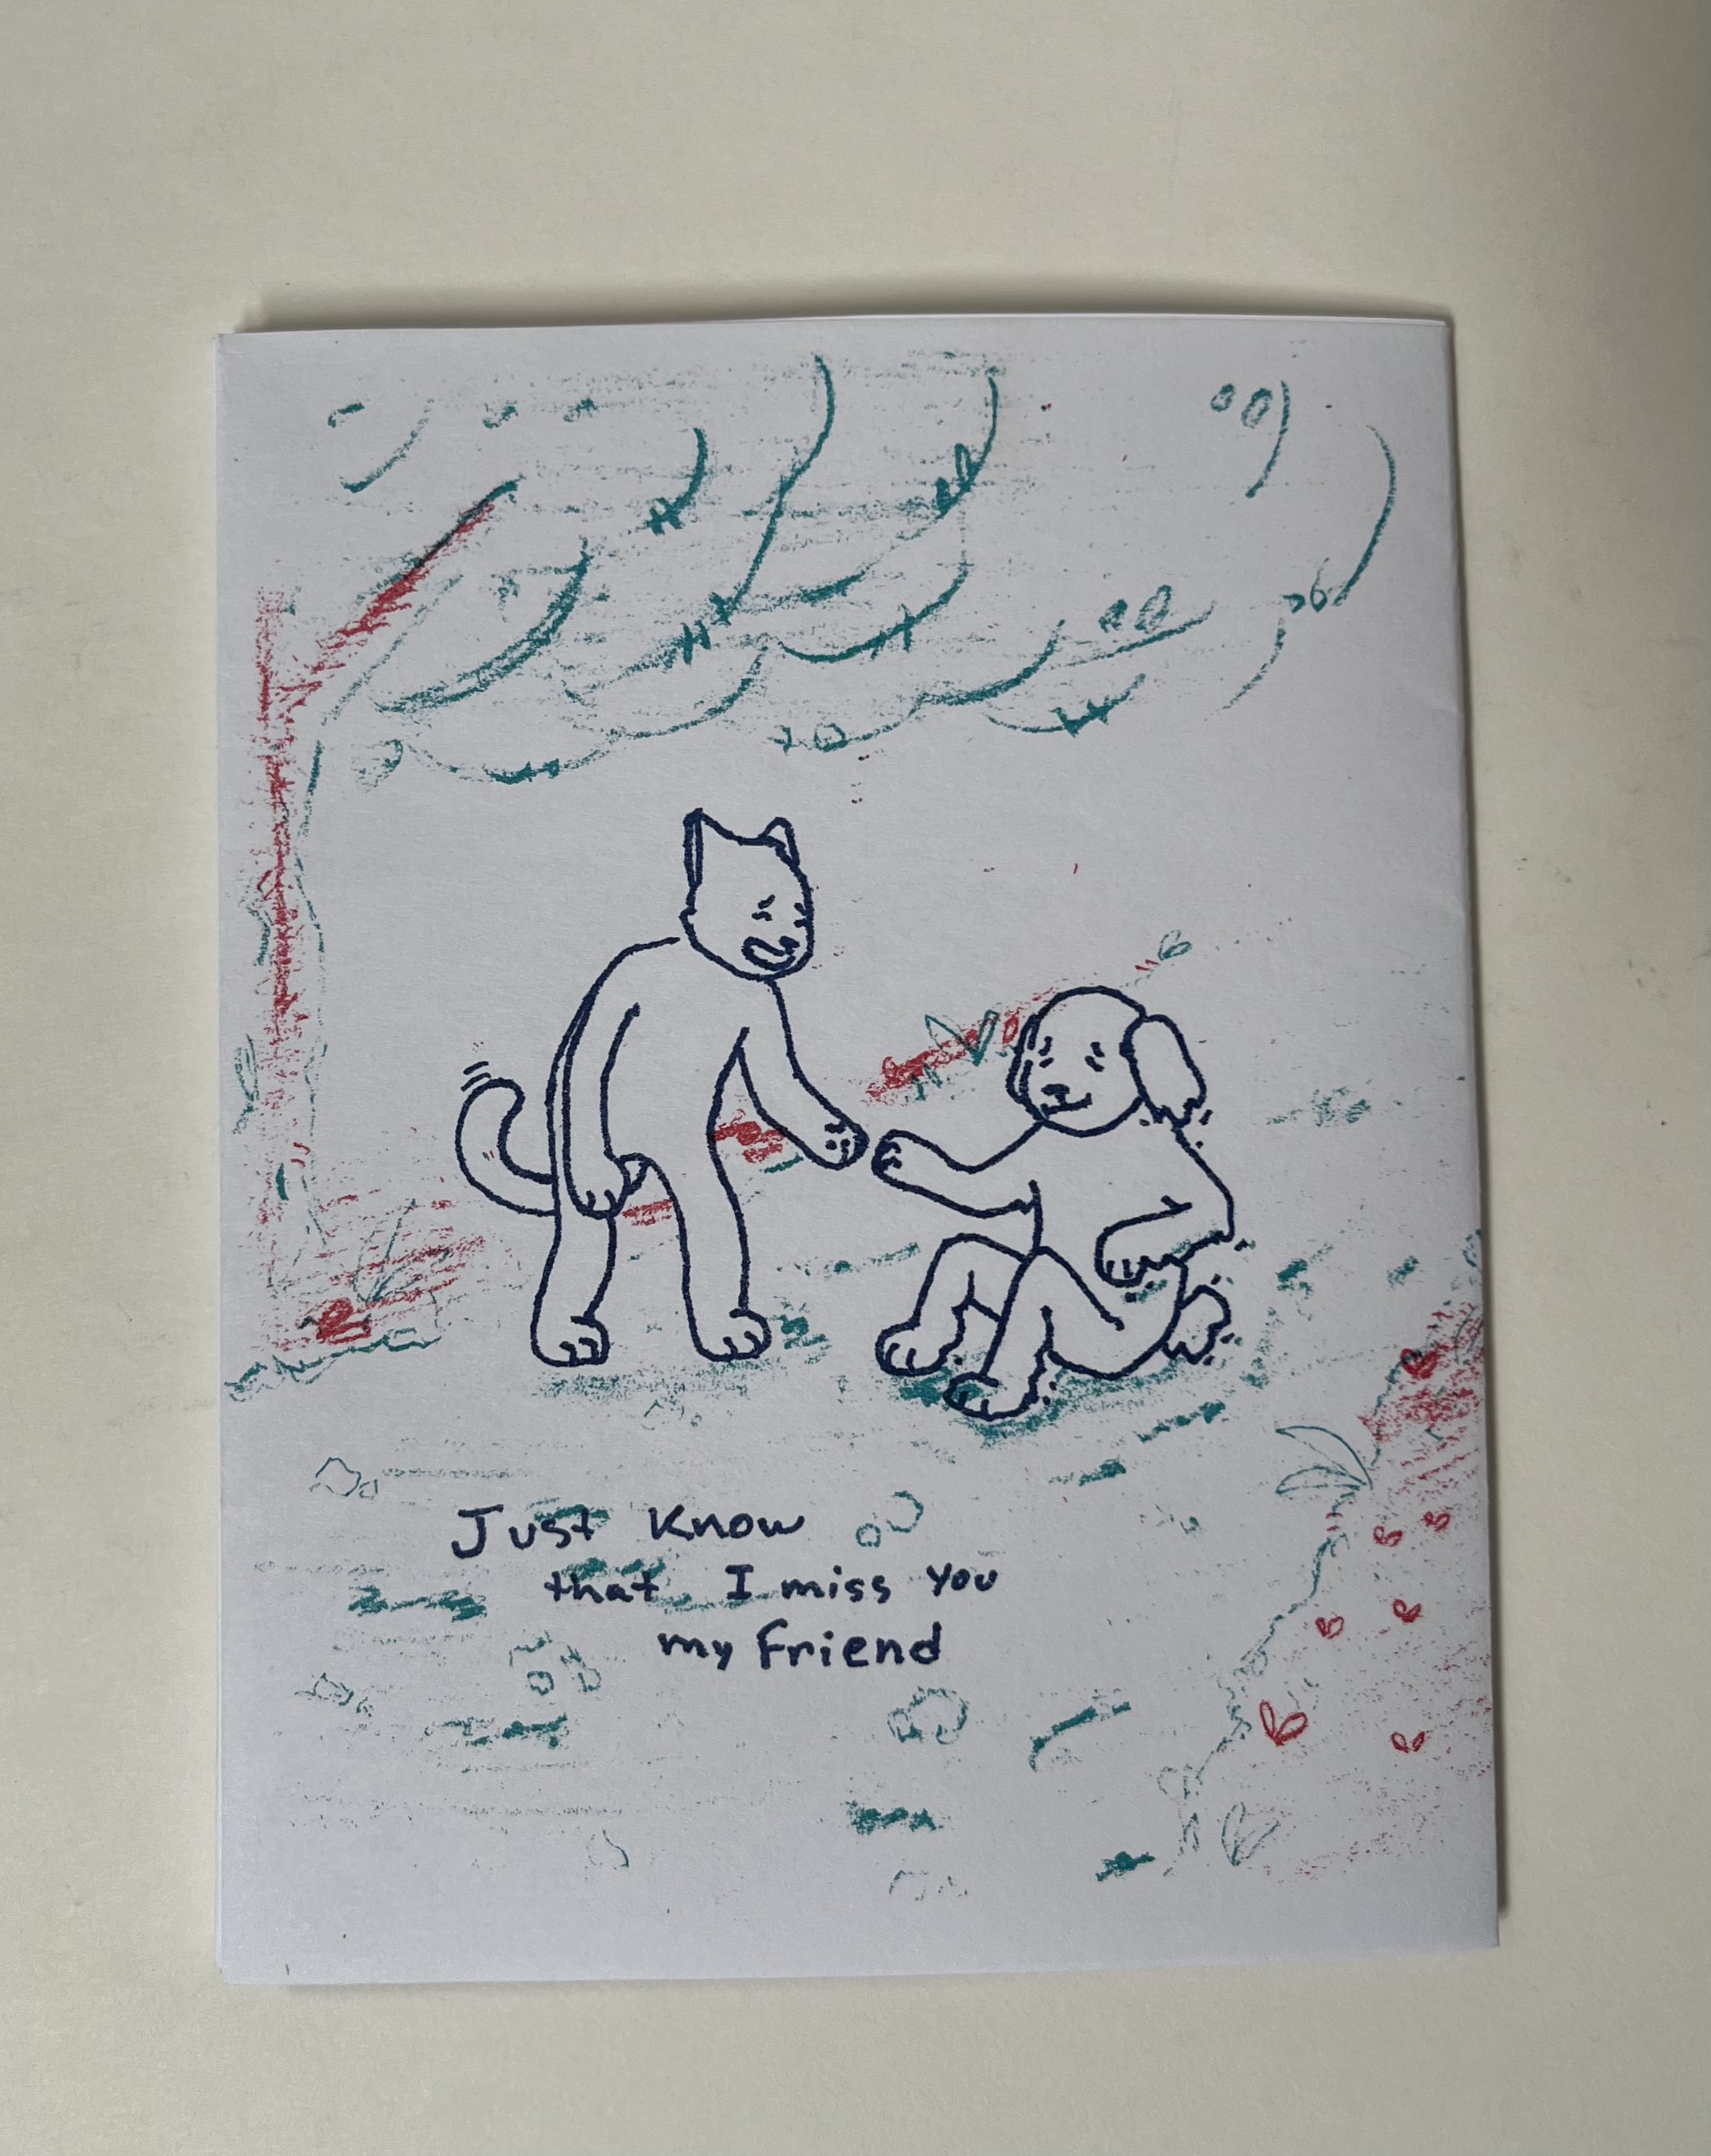 Just Know
that I miss You
my Friend